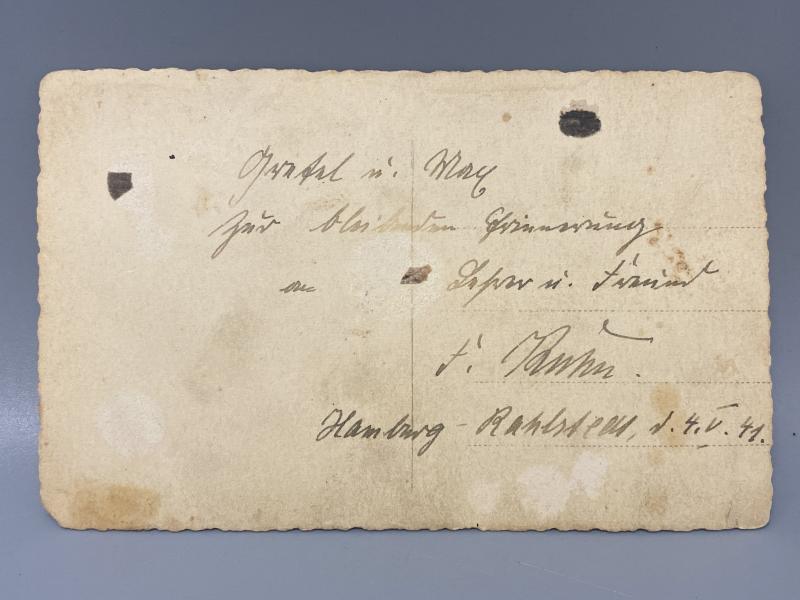 Gretel u. Max
zur bleibenden Erinnerung
an Lehrer u. Freund
F. Kuhn.
Hamburg - Rahlstedt, d. 4. V. 41.